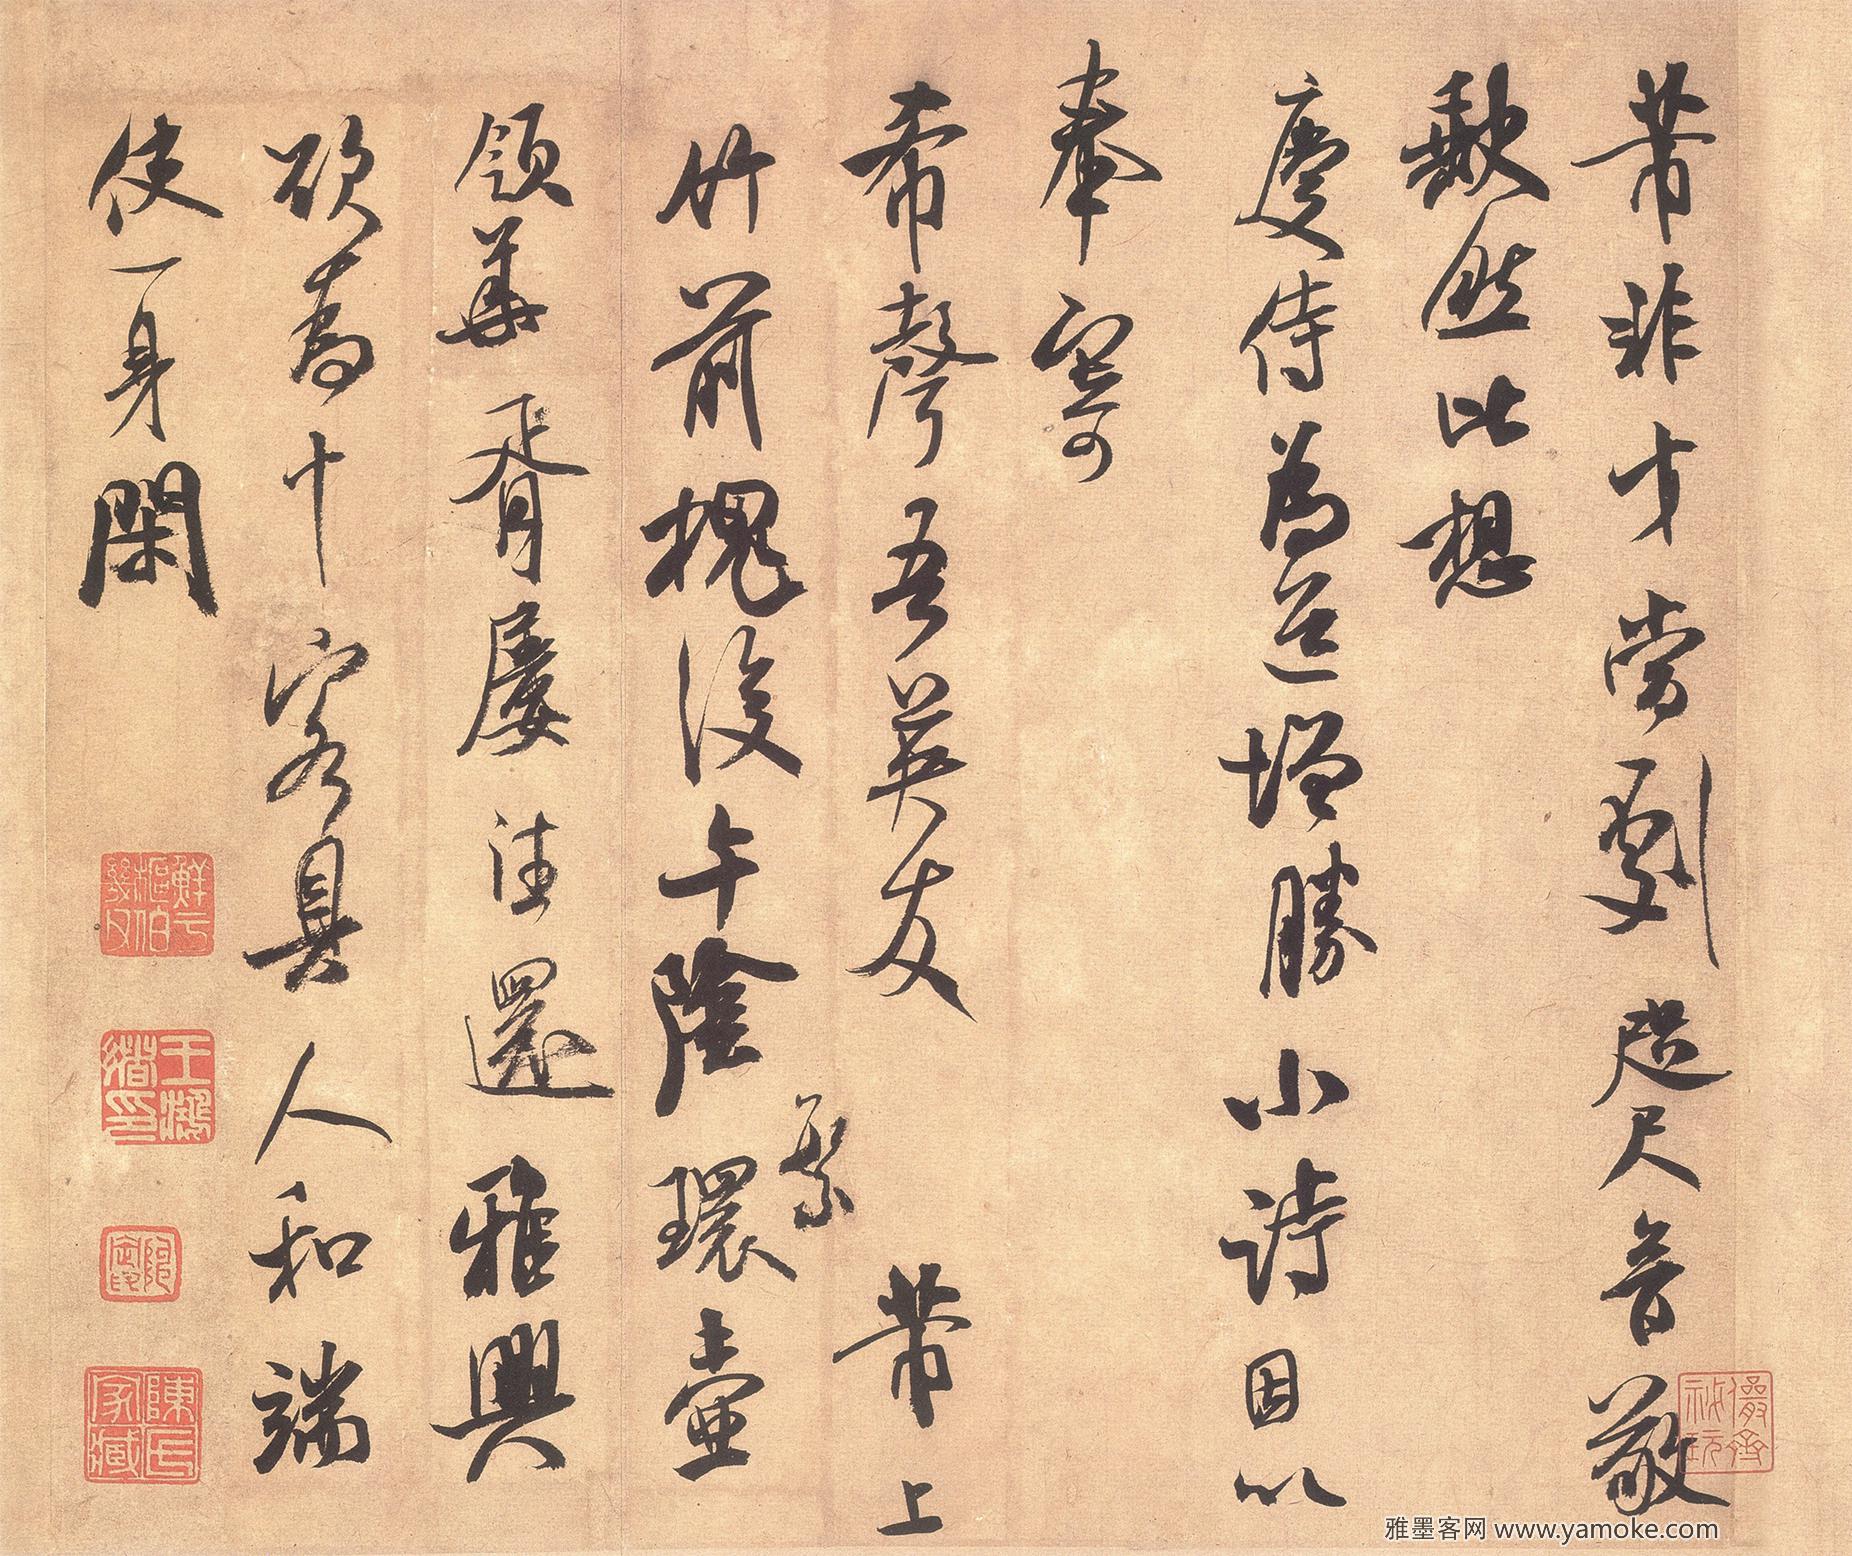 芾非才當劇咫尺音敬
缺然比想
慶侍為道增勝小詩因以
奉寄
希聲吾英友 芾上
竹前槐後午陰環壺
繁
領華胥屢往還雅興
欲為十客具人和端
使一身閑
鮮于樞伯幾父
王鴻緒印
陳氏家藏
儼齋秘玩
雅墨客网 www.yamoke.com